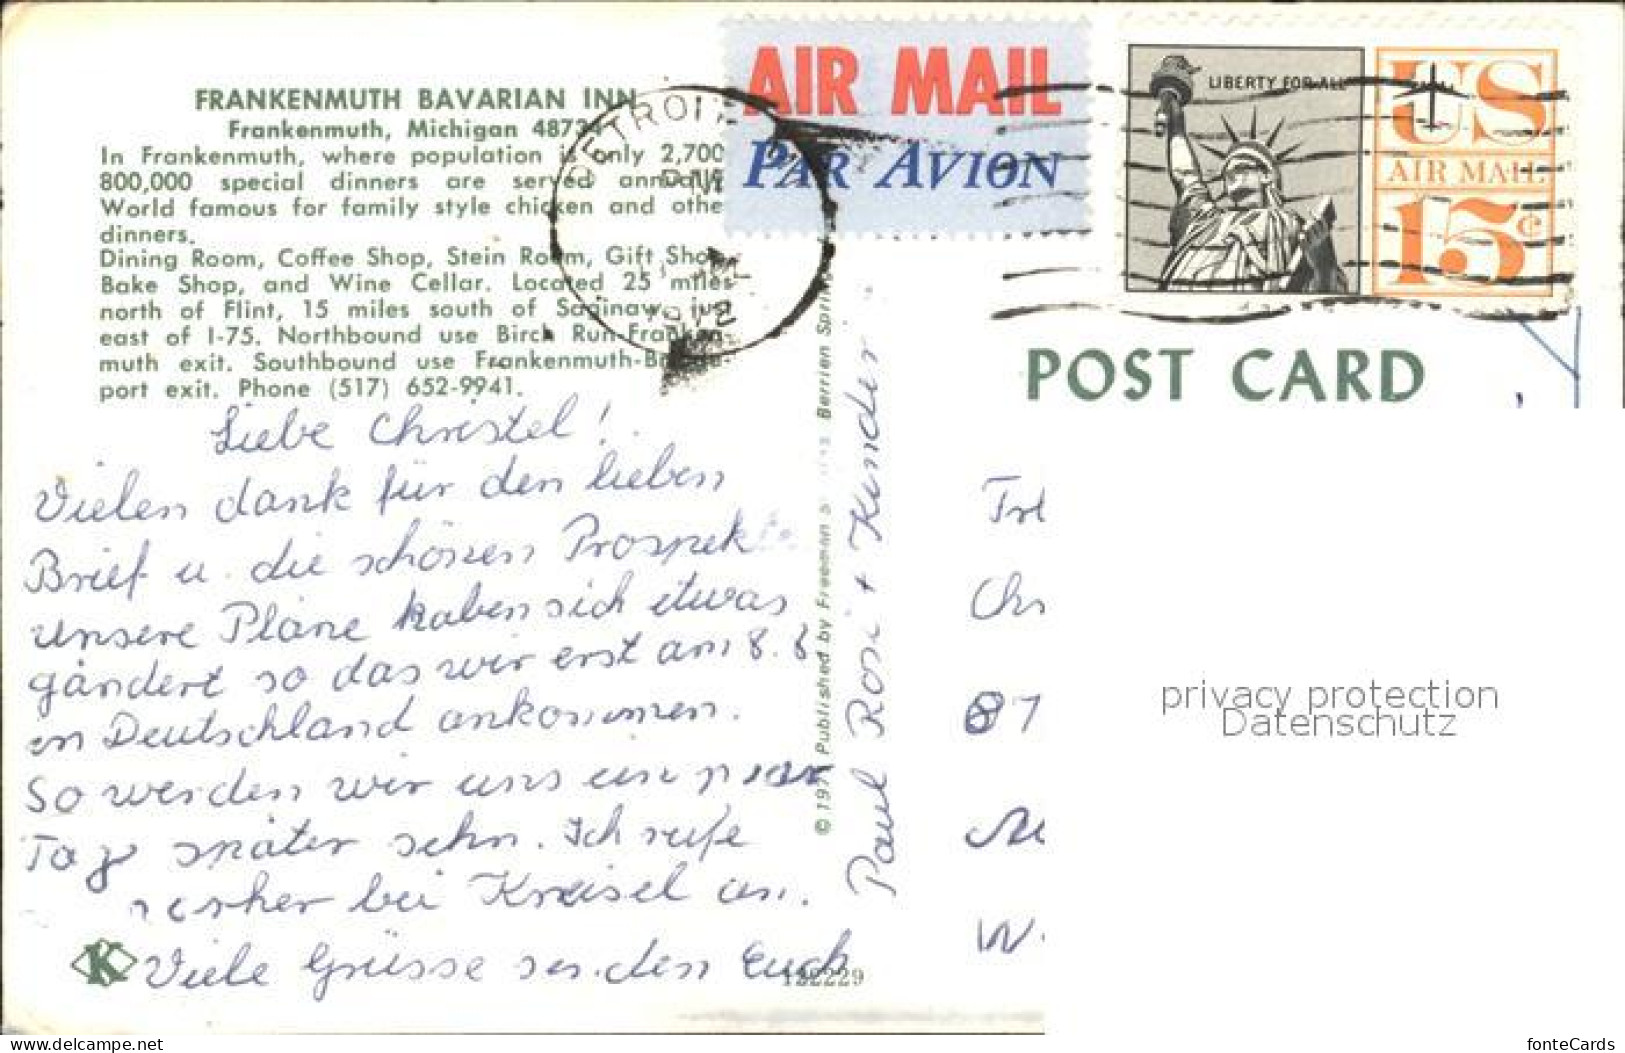 FRANKENMUTH BAVARIAN INN
Frankenmuth, Michigan 48734
In Frankenmuth, where population is only 2,700
800,000 special dinners are served annually
World famous for family style chicken and other
dinners.
Dining Room, Coffee Shop, Stein Room, Gift Shop
Bake Shop, and Wine Cellar. Located 25 miles
north of Flint, 15 miles south of Saginaw, just
east of I-75. Northbound use Birch Run-Franken-
muth exit. Southbound use Frankenmuth-Bridge-
port exit. Phone (517) 652-9941.
Liebe Christel!
Vielen dank für den lieben
Brief u. die schönen Prospekte
unsere Pläne haben sich etwas
gändert so das wir erst am 8. 8
in Deutschland ankommen.
So werden wir uns ein paar
Tage später sehn. Ich rufe
vorher bei Kreisel an.
Viele Grüsse senden Euch
Paul Rosi + Kinder
K
122229
Published by Freeman
Berrien
DETROIT
PM
AIR MAIL
PAR AVION
LIBERTY FOR ALL
US
AIR MAIL
15¢
POST CARD
87
W.
privacy protection
Datenschutz
www.delcampe.net
fonteCards